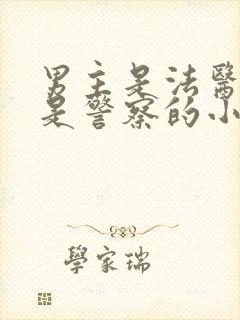 男主是法醫
是警察的小
學家瑞